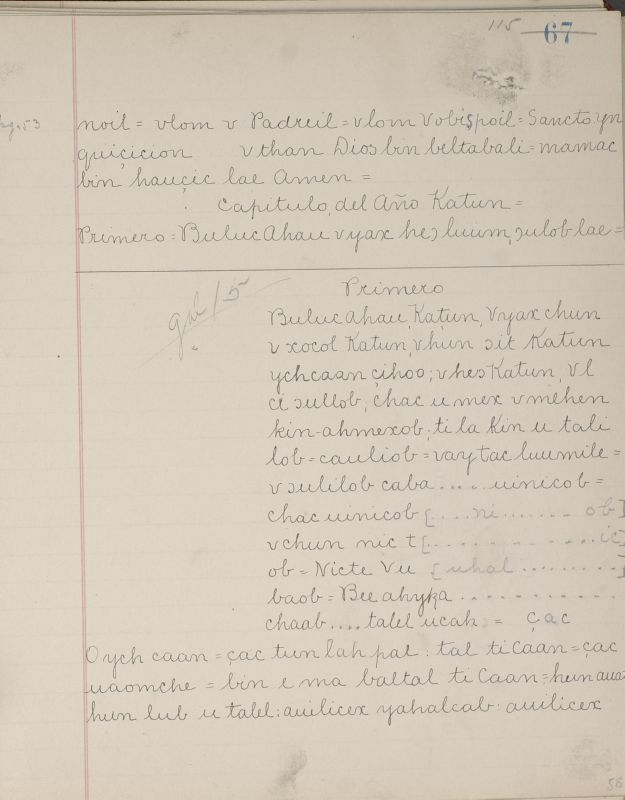 115 67
pg. 53
noil = vlom v Padreil = vlom Vobispoil = Sancto yn
quiçicion v than Dios bin beltabali = mamac
bin hauçic lae Amen =
Capitulo del Año Katun =
Primero = Buluc Ahau v yax heɔ luum ɔulob lae =
Primero
Buluc Ahau, Katun, Vyax chun
v xocol Katun, v hun ɔit Katun
ychcaan çihoo; v heɔ Katun, Vl
ci ɔullob; chac u mex v mehen
kin-ahmexob; ti la Kin u tali
lob = cauliob = vay tac luumile =
v ɔulilob caba .... uinicob =
chac uinicob [...ni....... ob]
v chun nic t[............ic]
ob = Nicte Vu [uhal ........]
baob = Bee ahyka ............
chaab .... talel ucah = çac
O ych caan = çac tun lah pal : tal ti Caan = çac
uaomche = bin e ma baltal ti Caan = hun auat
hun lub u talel : auilicex yahalcab : auilicex
58